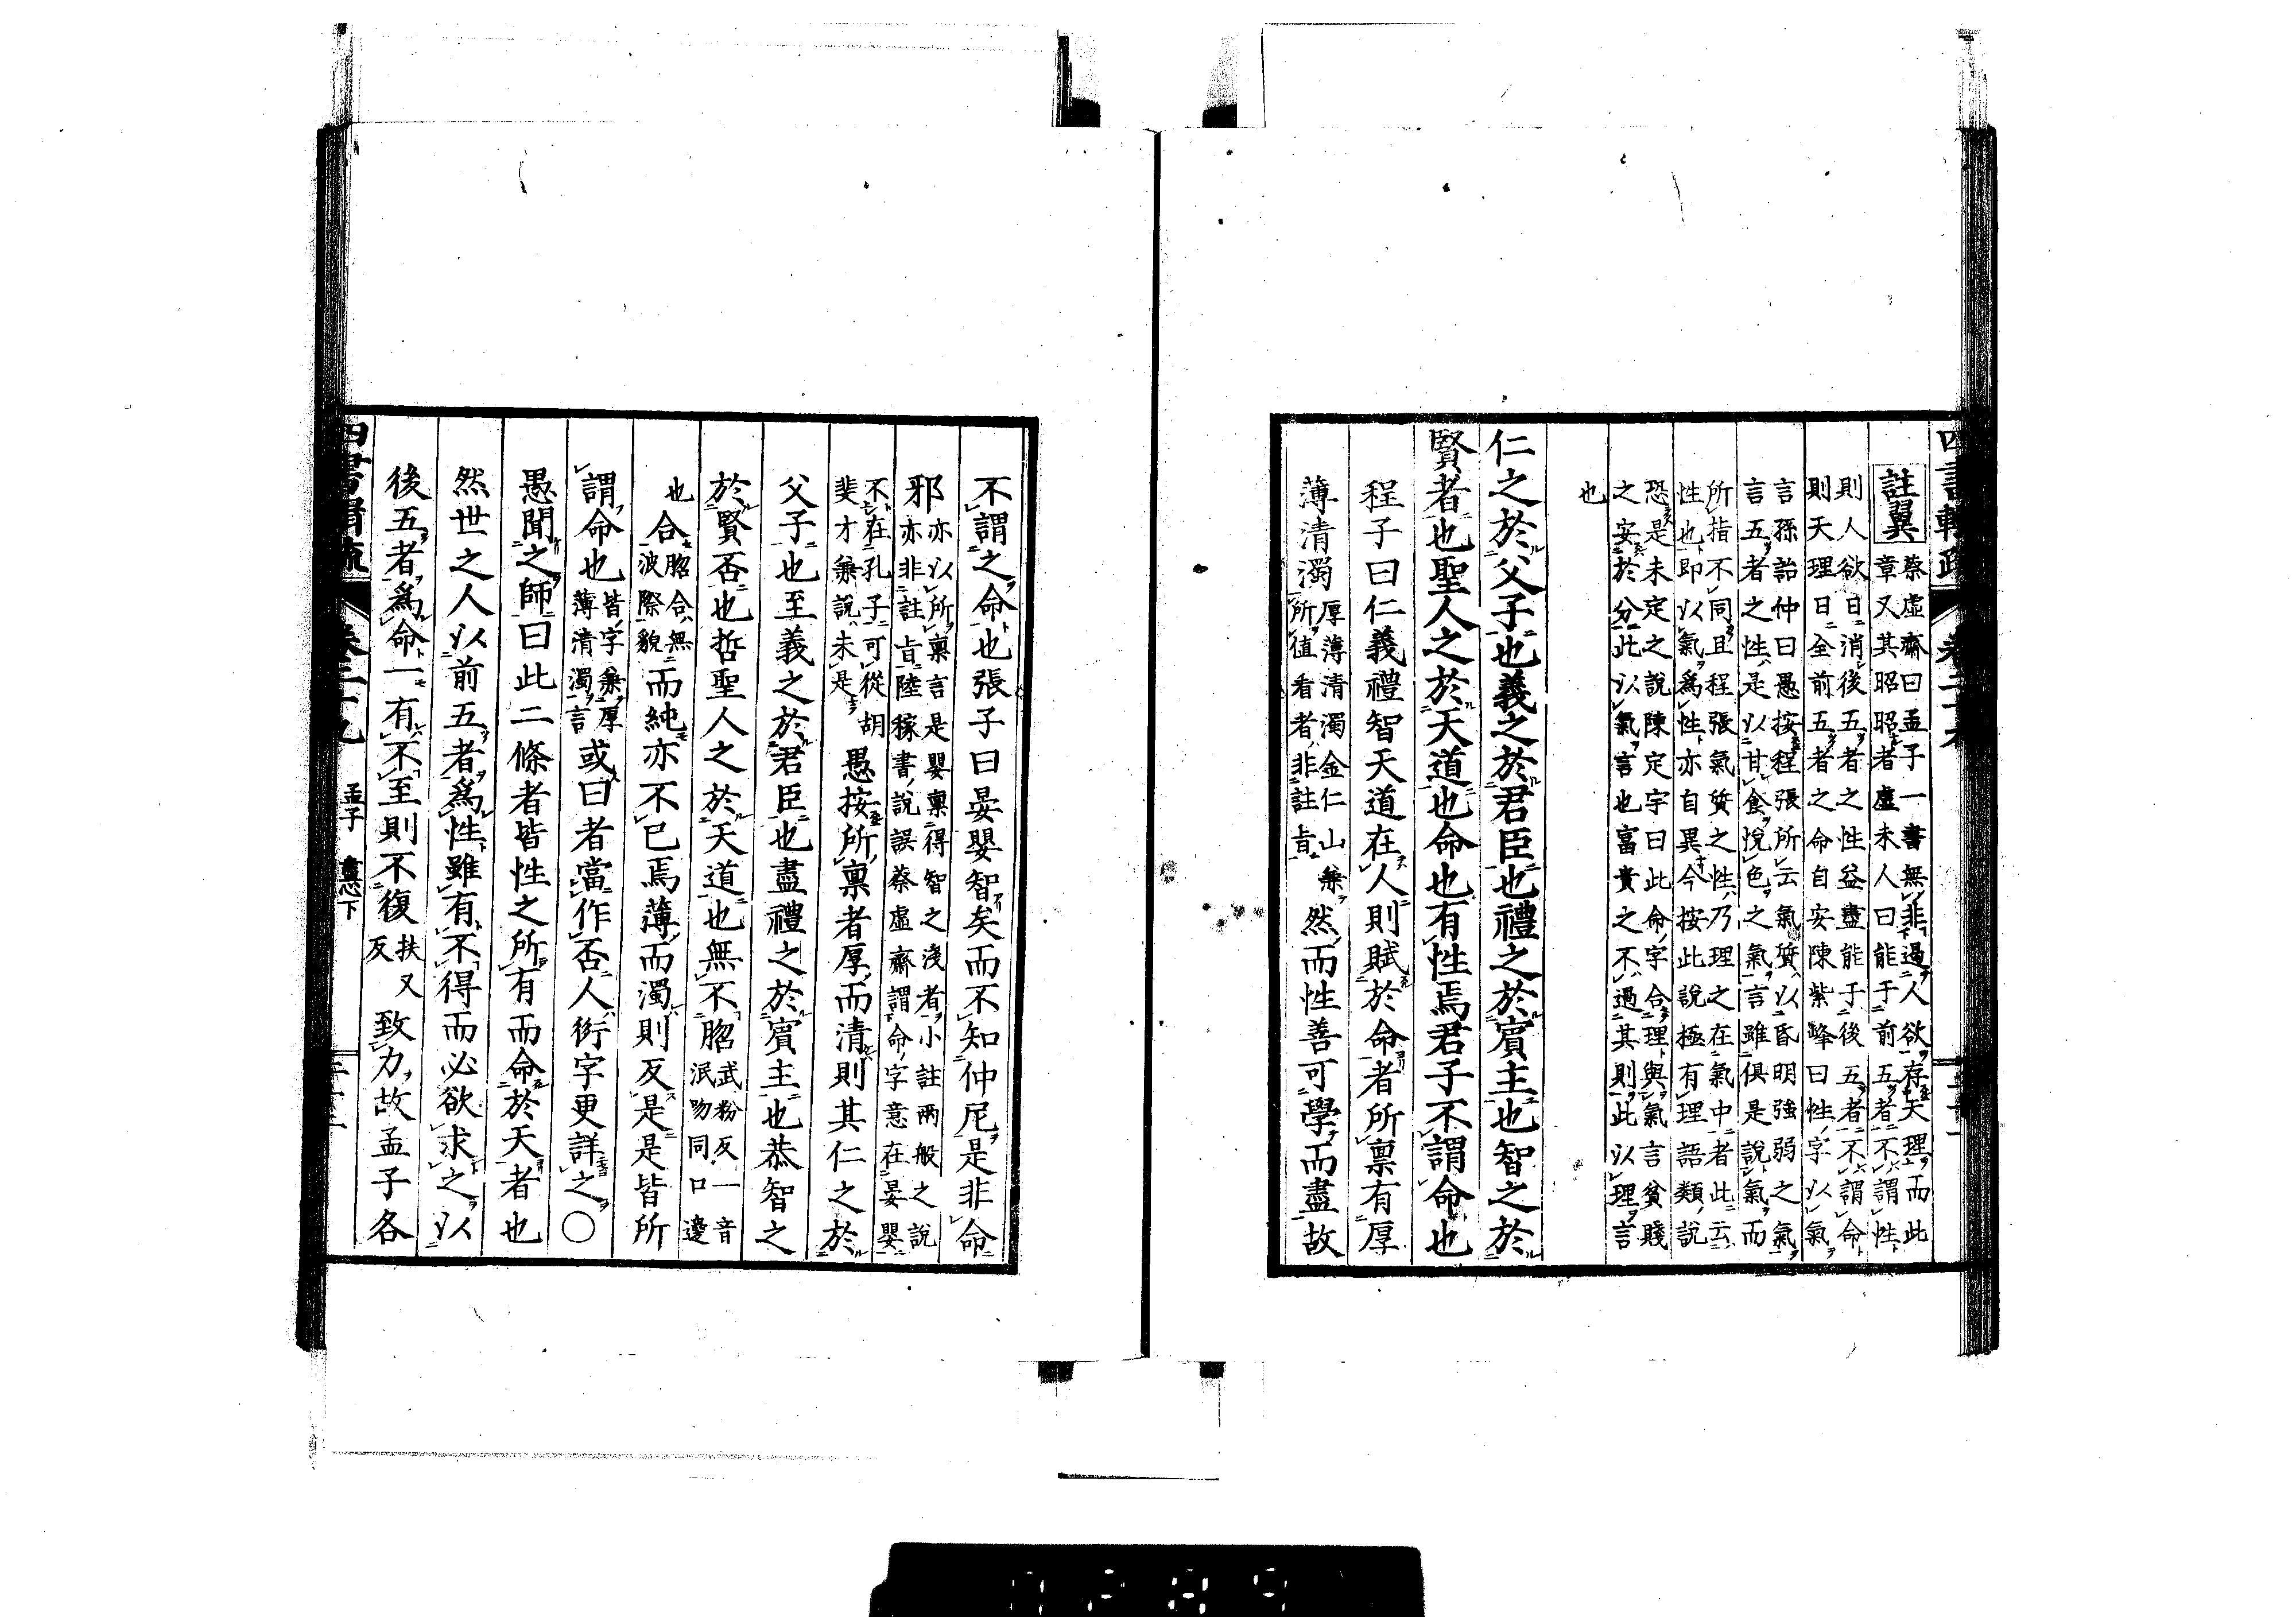 四書輯疏 卷二十九
註翼 蔡虛齋曰孟子一書無非遏人欲存天理而此
章又其昭昭者盧未人曰能于前五者不謂性
則人欲日消後五者之性益盡能于後五者不謂命
則天理日全前五者之命自安陳紫峰曰性字以氣
言孫詒仲曰愚按程張所云氣質以昏明強弱之氣
言五者之性是以甘食悅色之氣言雖俱是說氣而
所指不同且程張氣質之性乃理之在氣中者此云
性也即以氣為性亦自異今按此說極有理語類說
恐是未定之說陳定宇曰此命字合理與氣言貧賤
之安於分此以氣言也富貴之不過其則此以理言
也
仁之於父子也義之於君臣也禮之於賓主也智之於
賢者也聖人之於天道也命也有性焉君子不謂命也
程子曰仁義禮智天道在人則賦於命者所稟有厚
薄清濁厚薄清濁金仁山兼
所值看者非註旨然而性善可學而盡故
不謂之命也張子曰晏嬰智矣而不知仲尼是非命
邪亦以所稟言是嬰稟得智之淺者小註兩般之說
亦非註旨陸稼書說誤蔡虛齋謂命字意在晏嬰
不在孔子可從胡
斐才兼說未是愚按所稟者厚而清則其仁之於
父子也至義之於君臣也盡禮之於賓主也恭智之
於賢否也哲聖人之於天道也無不脗武粉反一音
泯吻同口邊
也
合脗合無
波際貌而純亦不已焉薄而濁則反是是皆所
謂命也皆字兼厚
薄清濁言或曰者當作否人衍字更詳之〇
愚聞之師曰此二條者皆性之所有而命於天者也
然世之人以前五者為性雖有不得而必欲求之以
後五者為命一有不至則不復扶又
反致力故孟子各
四書輯疏 卷二十九 孟子 盡心下